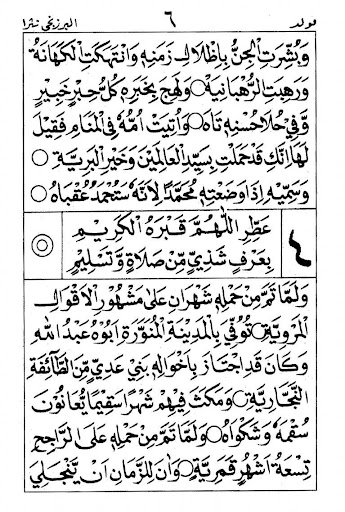 مولد ٦ البرزنجي نثرا
وَبُشِّرَتِ الْجِنُّ بِإِظْلَالِ زَمَنِهِ وَانْتَهَكَتِ الْكَهَانَةُ
وَرَهِبَتِ الرَّهْبَانِيَةُ ○ وَلَهِجَ بِخَبَرِهِ كُلُّ حِبْرٍ خَبِيْرٍ
وَفِيْ حُلَا حُسْنِهِ تَاهَ ○ وَأُتِيَتْ أُمُّهُ فِى الْمَنَامِ فَقِيْلَ
لَهَا اِنَّكِ قَدْ حَمَلْتِ بِسَيِّدِ الْعَالَمِيْنَ وَخَيْرِ الْبَرِيَّةِ ○
وَسَمِّيْهِ اِذَا وَضَعْتِهِ مُحَمَّدًا لِاَنَّهُ سَتُحْمَدُ عُقْبَاهُ ○
عَطِّرِ اللّٰهُمَّ قَبْرَهُ الْكَرِيْمِ
بِعَرْفٍ شَذِيٍّ مِّنْ صَلَاةٍ وَّتَسْلِيْمٍ ○
٤
وَلَمَّا تَمَّ مِنْ حَمْلِهِ شَهْرَانِ عَلٰى مَشْهُوْرِ الْاَقْوَالِ
الْمَرْوِيَّةِ ○ تُوُفِّيَ بِالْمَدِيْنَةِ الْمُنَوَّرَةِ اَبُوْهُ عَبْدُ اللّٰهِ
وَكَانَ قَدِ اجْتَازَ بِاَخْوَالِهِ بَنِيْ عَدِيٍّ مِّنَ الطَّائِفَةِ
النَّجَّارِيَّةِ ○ وَمَكَثَ فِيْهِمْ شَهْرًا سَقِيْمًا يُعَانُوْنَ
سُقْمَهُ وَشَكْوَاهُ ○ وَلَمَّا تَمَّ مِنْ حَمْلِهِ عَلَى الرَّاجِحِ
تِسْعَةُ اَشْهُرٍ قَمَرِيَّةٍ ○ وَاٰنَ لِلزَّمَانِ اَنْ يَّنْجَلِيَ